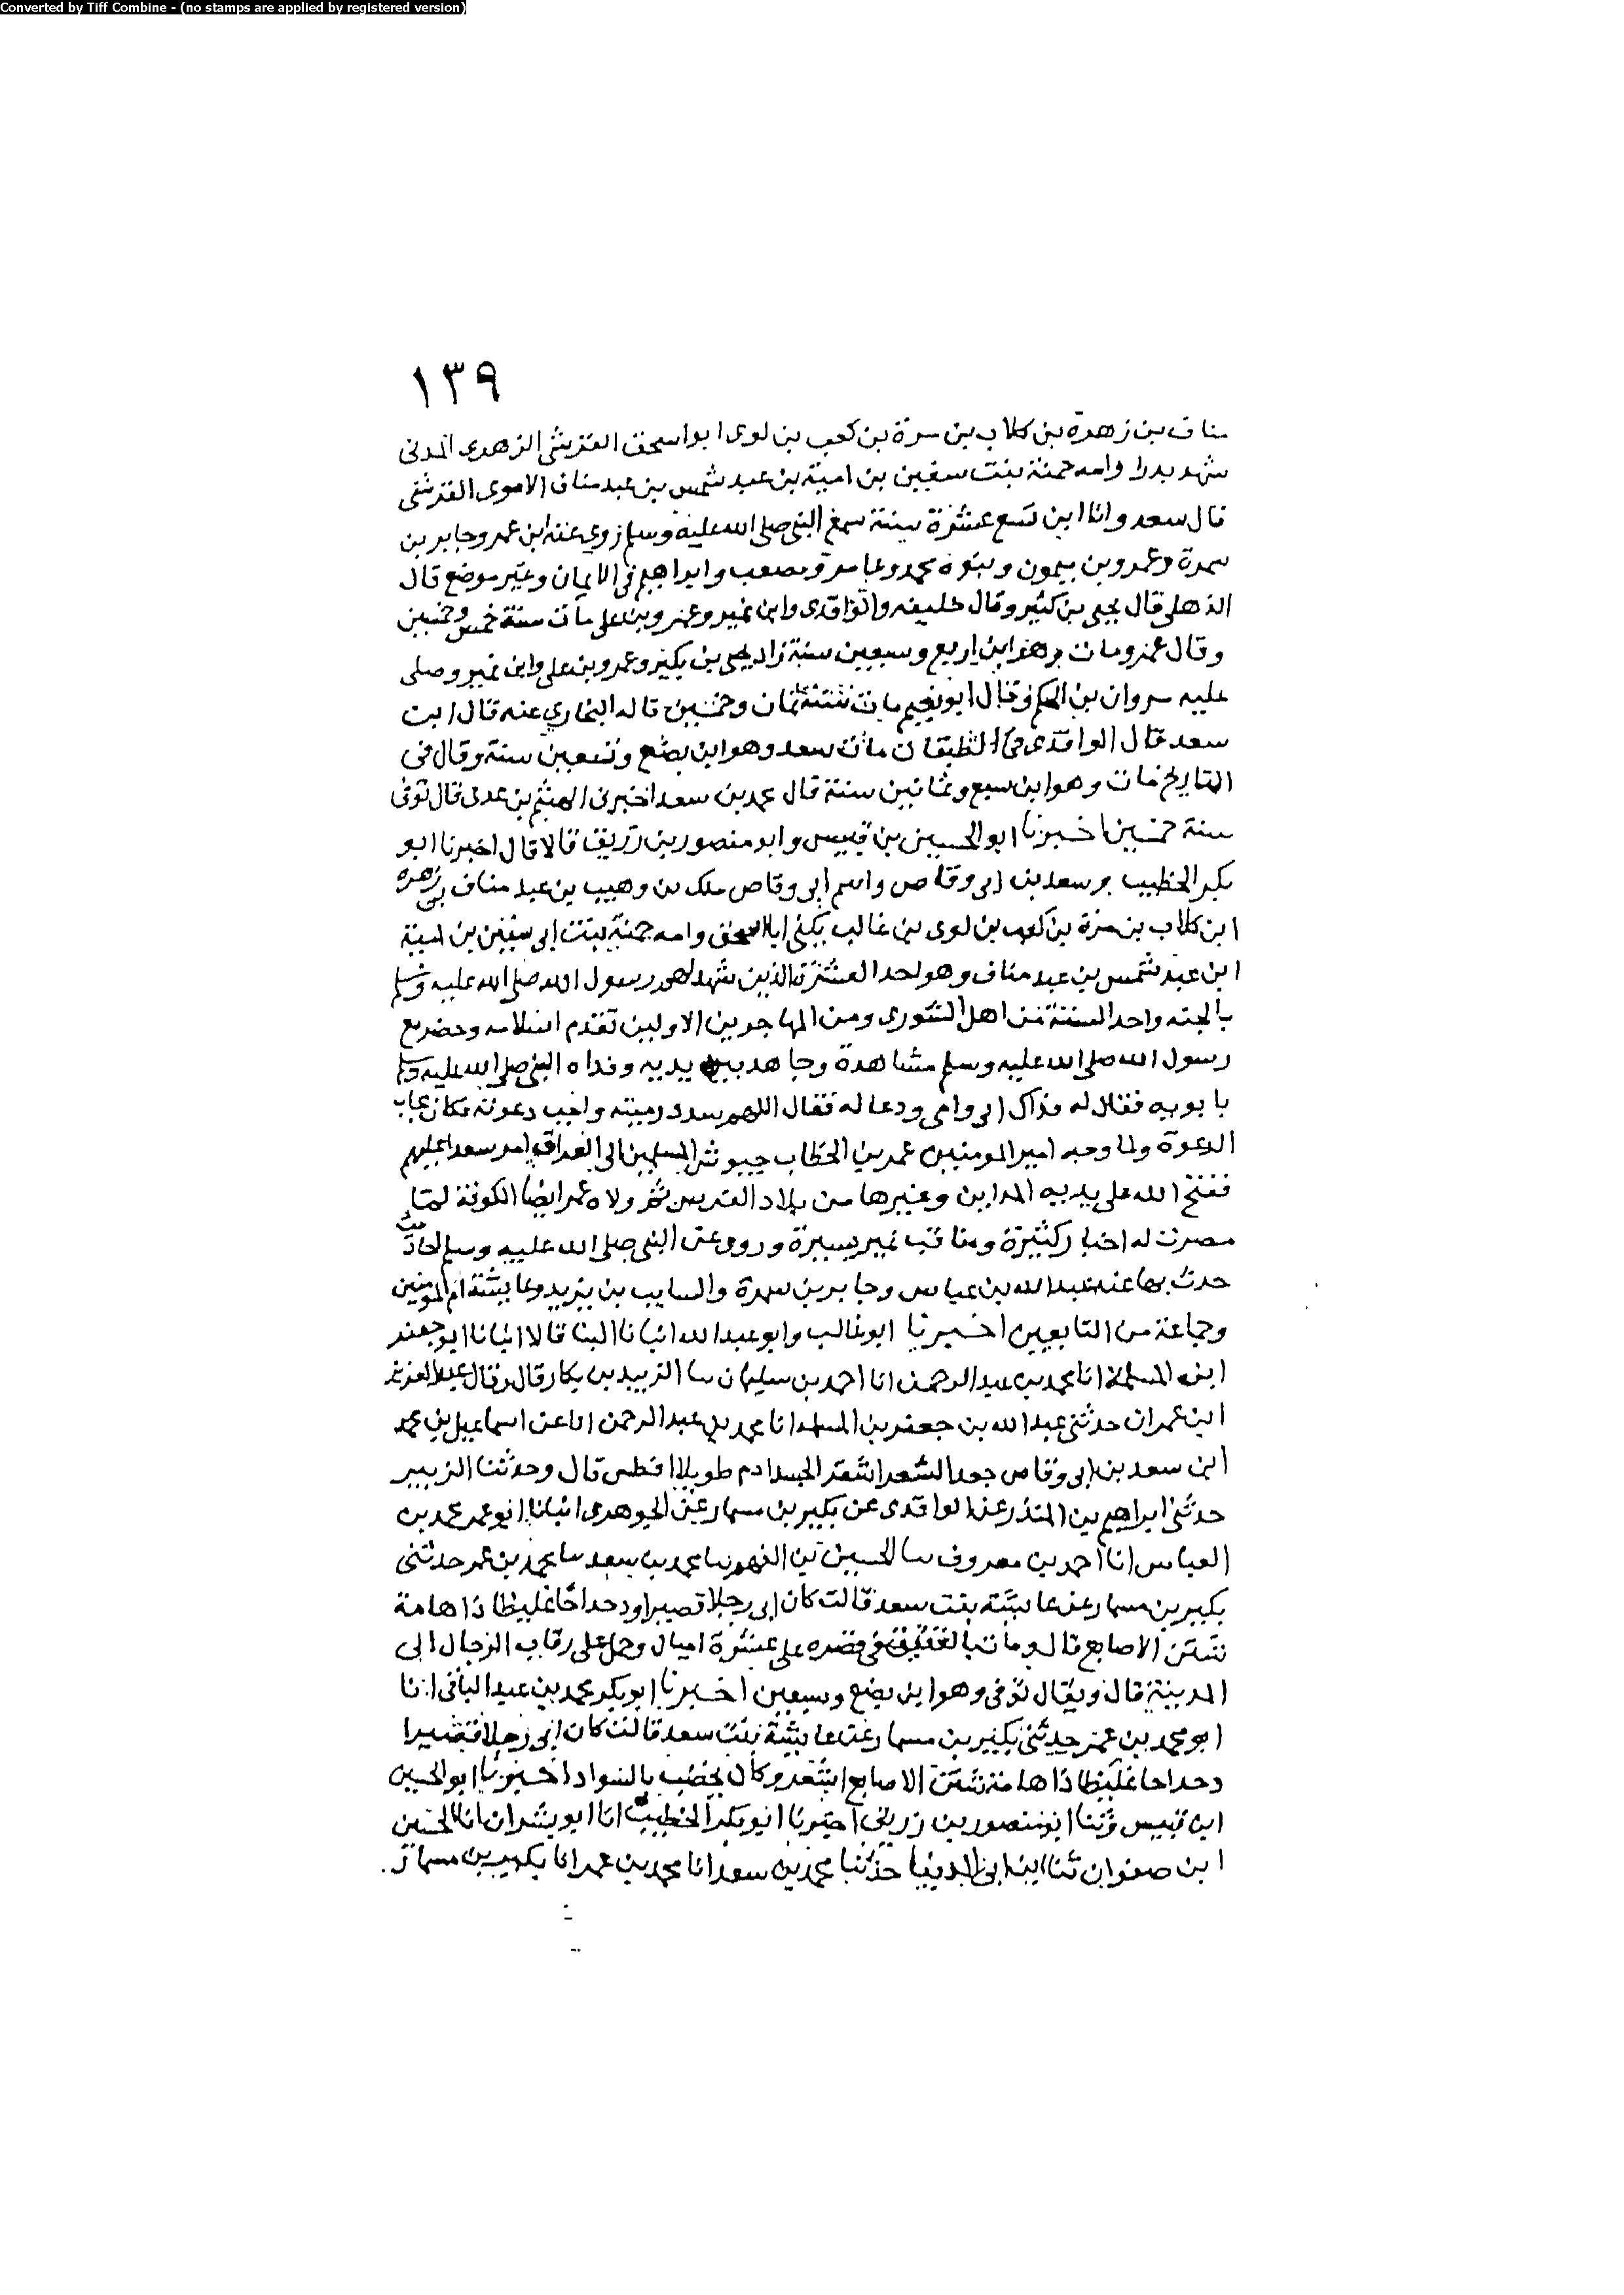 Converted by Tiff Combine - (no stamps are applied by registered version)
١٣٩
مناف بن زهرة بن كلاب بن مرة بن كعب بن لوى ابو اسحق القرشى الزهرى المدنى
شهد بدرا وامه حمنة بنت سفين بن امية بن عبد شمس بن عبد مناف الاموى القرشى
قال سعد وانا ابن تسع عشرة سنة سمع النبى صلى الله عليه وسلم روى عنه ابن عمر وجابر بن
سمرة وعمرو بن ميمون وبنوه محمد وعامر ومصعب وابراهيم فى الايمان وغير موضع قال
الذهلى قال يحيى بن كثير وقال خليفه والواقدى وابن نمير وعمرو بن على مات سنة خمس وخمسين
وقال عمرو مات وهو ابن اربع وسبعين سنة زاد يحيى بن بكير وعمرو بن على وابن نمير وصلى
عليه مروان بن الحكم وقال ابو نعيم مات سنة ثمان وخمسين قاله البخارى عنه قال ابن
سعد قال الواقدى فى الطبقات مات سعد وهو ابن بضع وتسعين سنة وقال فى
التاريخ مات وهو ابن سبع وثمانين سنة قال محمد بن سعد اخبرنى الهيثم بن عدى قال توفى
سنة خمسين اخبرنا ابو الحسين بن قبيس وابو منصور بن زريق قالا قال اخبرنا ابو
بكر الخطيب وسعد بن ابى وقاص واسم ابى وقاص ملك بن وهيب بن عبد مناف بن زهره
ابن كلاب بن مرة بن كعب بن لوى بن غالب يكنى ابا اسحق وامه حمنة بنت ابى سفين بن امية
ابن عبد شمس بن عبد مناف وهو احد العشرة الذين شهد لهم رسول الله صلى الله عليه وسلم
بالجنه واحد الستة من اهل الشورى ومن المهاجرين الاولين تقدم اسلامه وحضر مع
رسول الله صلى الله عليه وسلم مشاهدة وجاهد بين يديه وفداه النبى صلى الله عليه وسلم
بابويه فقال له فداك ابى وامى ودعا له فقال اللهم سدد رميته واجب دعوته فكان مجاب
الدعوة ولما وجه امير المومنين عمر بن الخطاب جيوش المسلمين الى العراق امر سعدا عليهم
ففتح الله على يديه المداين وغيرها من بلاد الفرس ثم ولاه عمر ايضا الكوفة لما
مصرت له اخبار كثيرة ومناقب غير يسيرة وروى عن النبى صلى الله عليه وسلم احاديث
حدث بها عنه عبد الله بن عباس وجابر بن سمرة والسايب بن يزيد وعايشة ام المومنين
وجماعة من التابعين اخبرنا ابو غالب وابو عبد الله انبانا البنا قالا انبانا ابو جعفر
ابن المسلمة انا محمد بن عبد الرحمن انا احمد بن سليمان سا الزبير بن بكار قال وقال عبد العزيز
ابن عمران حدثنى عبد الله بن جعفر بن المسلمة انا محمد بن عبد الرحمن انا عن اسماعيل بن محمد
ابن سعد بن ابى وقاص جعد الشعر اشعر الجسد ادم طويلا افطس قال وحدثنا الزبير
حدثنى ابراهيم بن المنذر عن الواقدى عن بكير بن مسمار عن الجوهرى انبانا ابو عمر محمد بن
العباس انا احمد بن معروف سا الحسين بن الفهم سا محمد بن سعد سا محمد بن عمر حدثنى
بكير بن مسمار عن عايشة بنت سعد قالت كان ابى رجلا قصيرا ودحداحا غليظا ذا هامة
شثن الاصابع قال ومات بالعقيق فى قصره على عشرة اميال وحمل على رقاب الرجال الى
المدينة قال ويقال توفى وهو ابن بضع وسبعين اخبرنا ابو بكر محمد بن عبد الباقى انا
ابو محمد بن عمر حدثنى بكير بن مسمار عن عايشة بنت سعد قالت كان ابى رجلا قصيرا
دحداحا غليظا ذا هامة شثن الاصابع اشعر وكان يخضب بالسواد اخبرنا ابو الحسين
ابن قبيس وثنا ابو منصور بن زريق اخبرنا ابو بكر الخطيب انا ابو بشران انا الحسين
ابن صفوان ثنا ابن ابى الدنيا حدثنا محمد بن سعد انا محمد بن عمر انا بكير بن مسمار